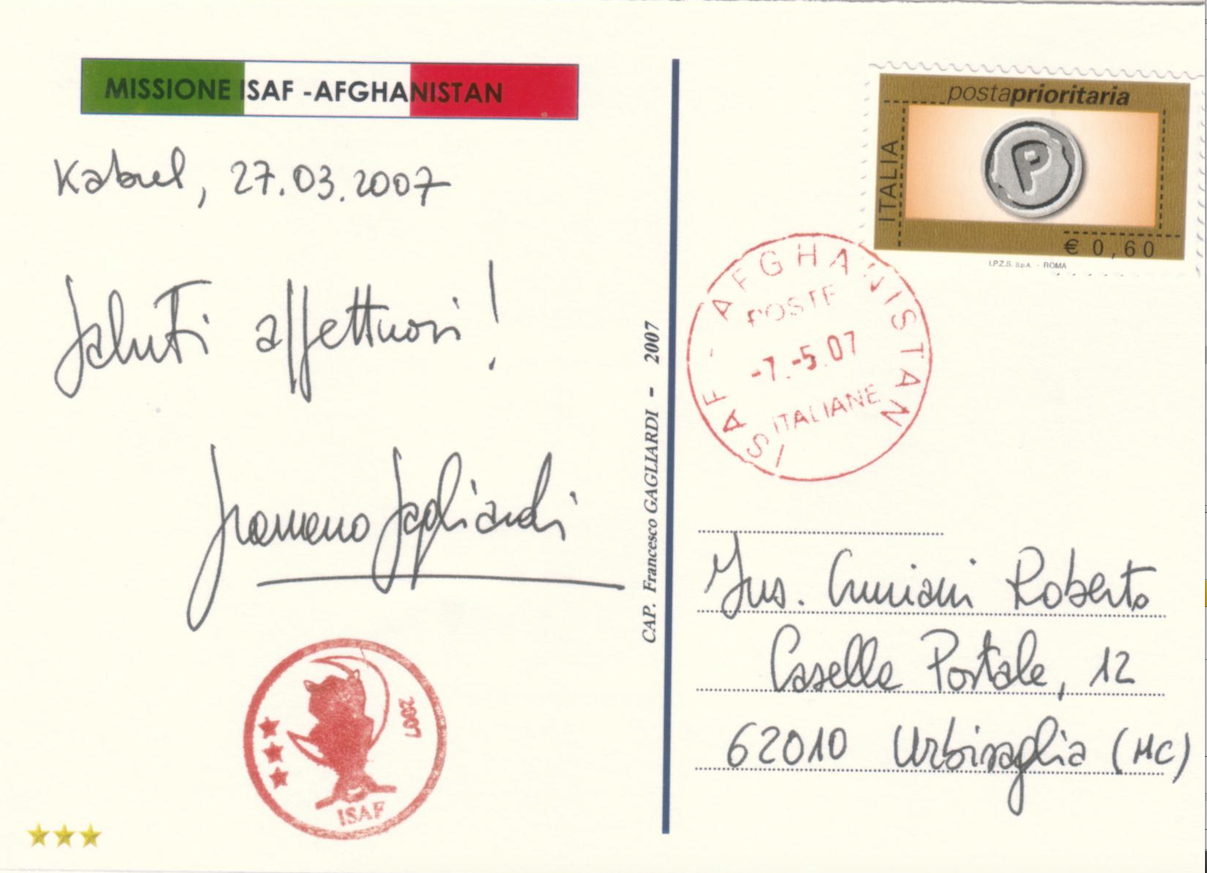 MISSIONE ISAF -AFGHANISTAN
Kabul, 27.03.2007
Saluti affettuosi!
Francesco Gagliardi
2007
ISAF
CAP. Francesco GAGLIARDI - 2007
postaprioritaria
ITALIA
P
€ 0,60
I.P.Z.S. S.p.A. - ROMA
ISAF - AFGHANISTAN
POSTE
-7.-5.07
ITALIANE
Ins. Cruciani Roberto
Casella Postale, 12
62010 Urbisaglia (MC)